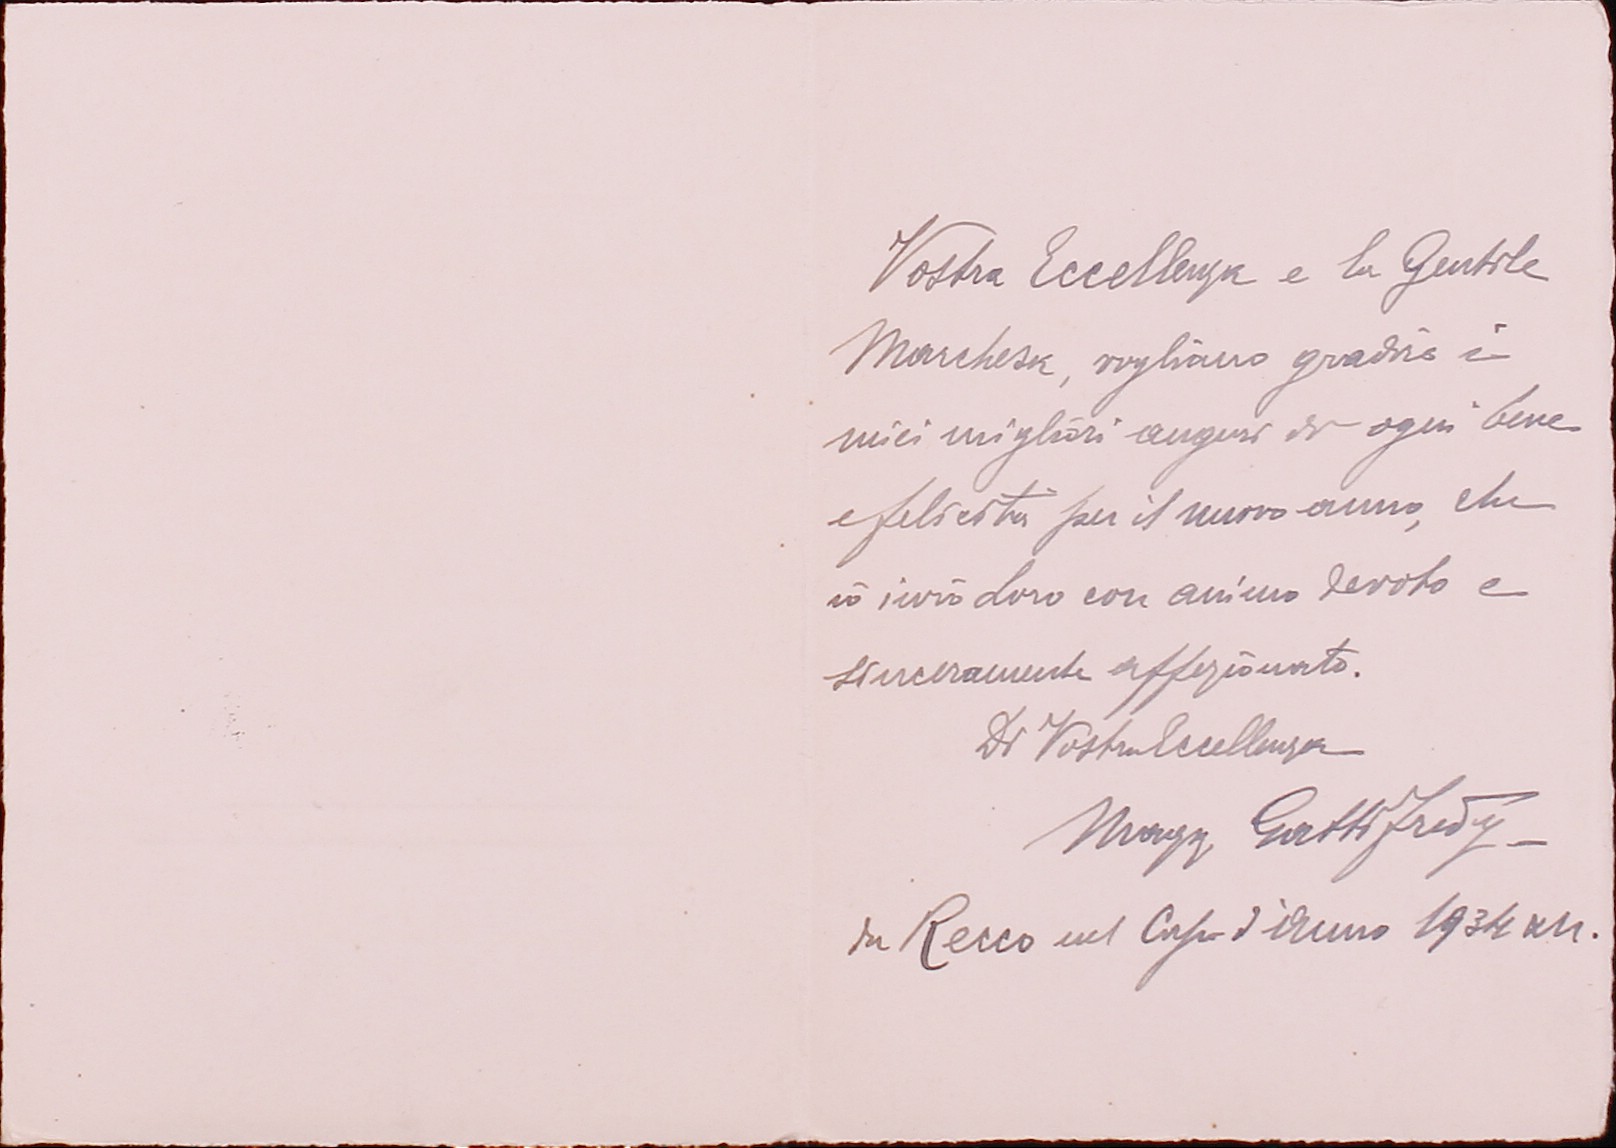 Vostra Eccellenza e la Gentile
Marchesa, vogliano gradire i
miei migliori auguri di ogni bene
e felicità per il nuovo anno, che
io invio Loro con animo devoto e
sinceramente affezionato.
Di Vostra Eccellenza
da Recco nel Capo d'anno 1934 XII.